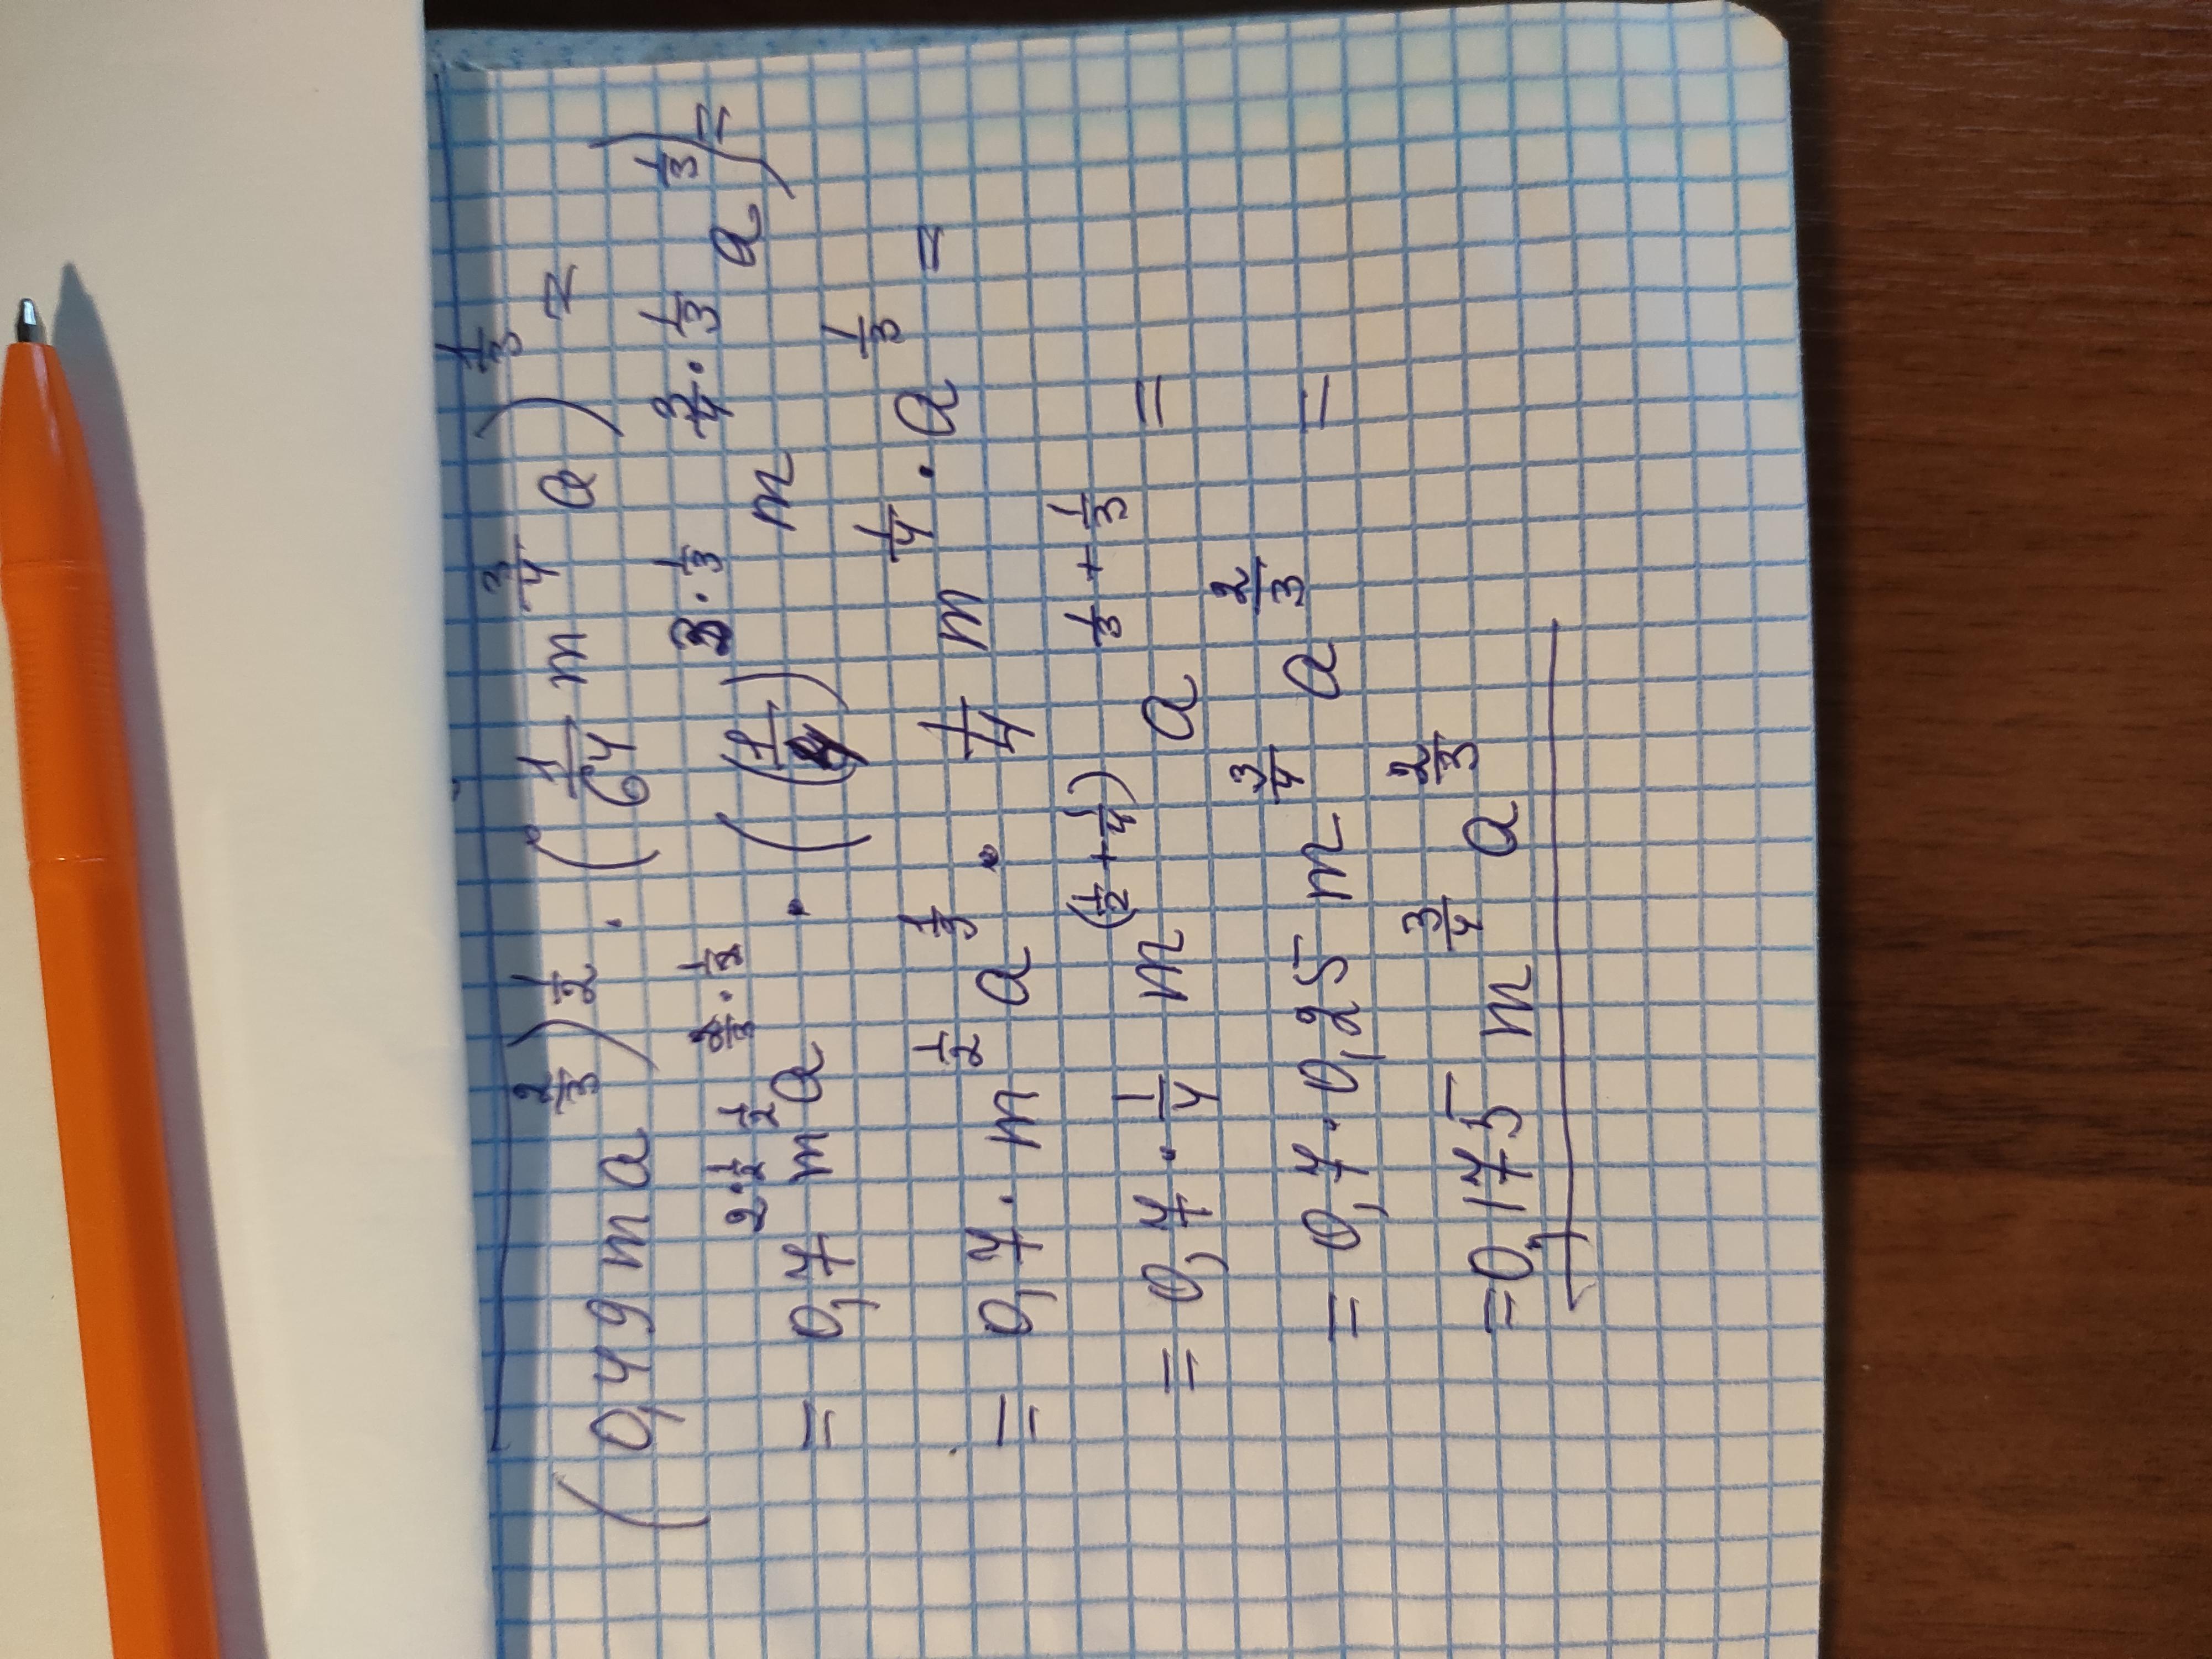 (0,49 m a^(2/3))^(1/2) · (1/64 m^(3/4) a)^(1/3) =
= 0,7^(2·1/2) m^(1/2) a^(2/3·1/2) · ((1/4)^(3·1/3) m^(3/4·1/3) a^(1/3)) =
= 0,7 · m^(1/2) a^(1/3) · 1/4 m^(1/4) · a^(1/3) =
= 0,7 · 1/4 m^(1/2+1/4) a^(1/3+1/3) =
= 0,7 · 0,25 m^(3/4) a^(2/3) =
= 0,175 m^(3/4) a^(2/3)